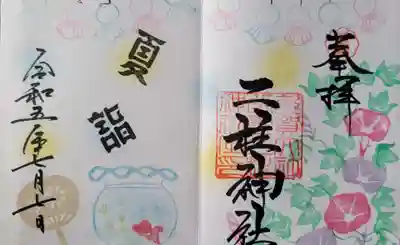 奉拝
二柱神社
夏詣
令和五年七月七日